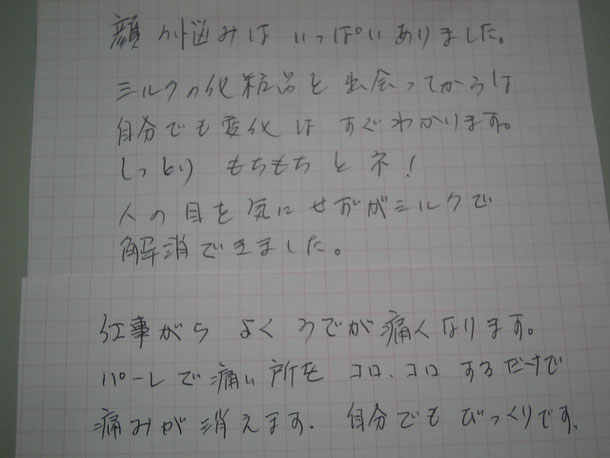 顔の悩みはいっぱいありました。
ミルクの化粧品と出会ってからは
自分でも変化はすぐわかります。
しっとり もちもちとネ!
人の目を気にせずがミルクで
解消できました。
仕事がら よくうでが痛くなります。
パールで痛い所を コロ、コロ するだけで
痛みが消えます. 自分でも びっくりです.